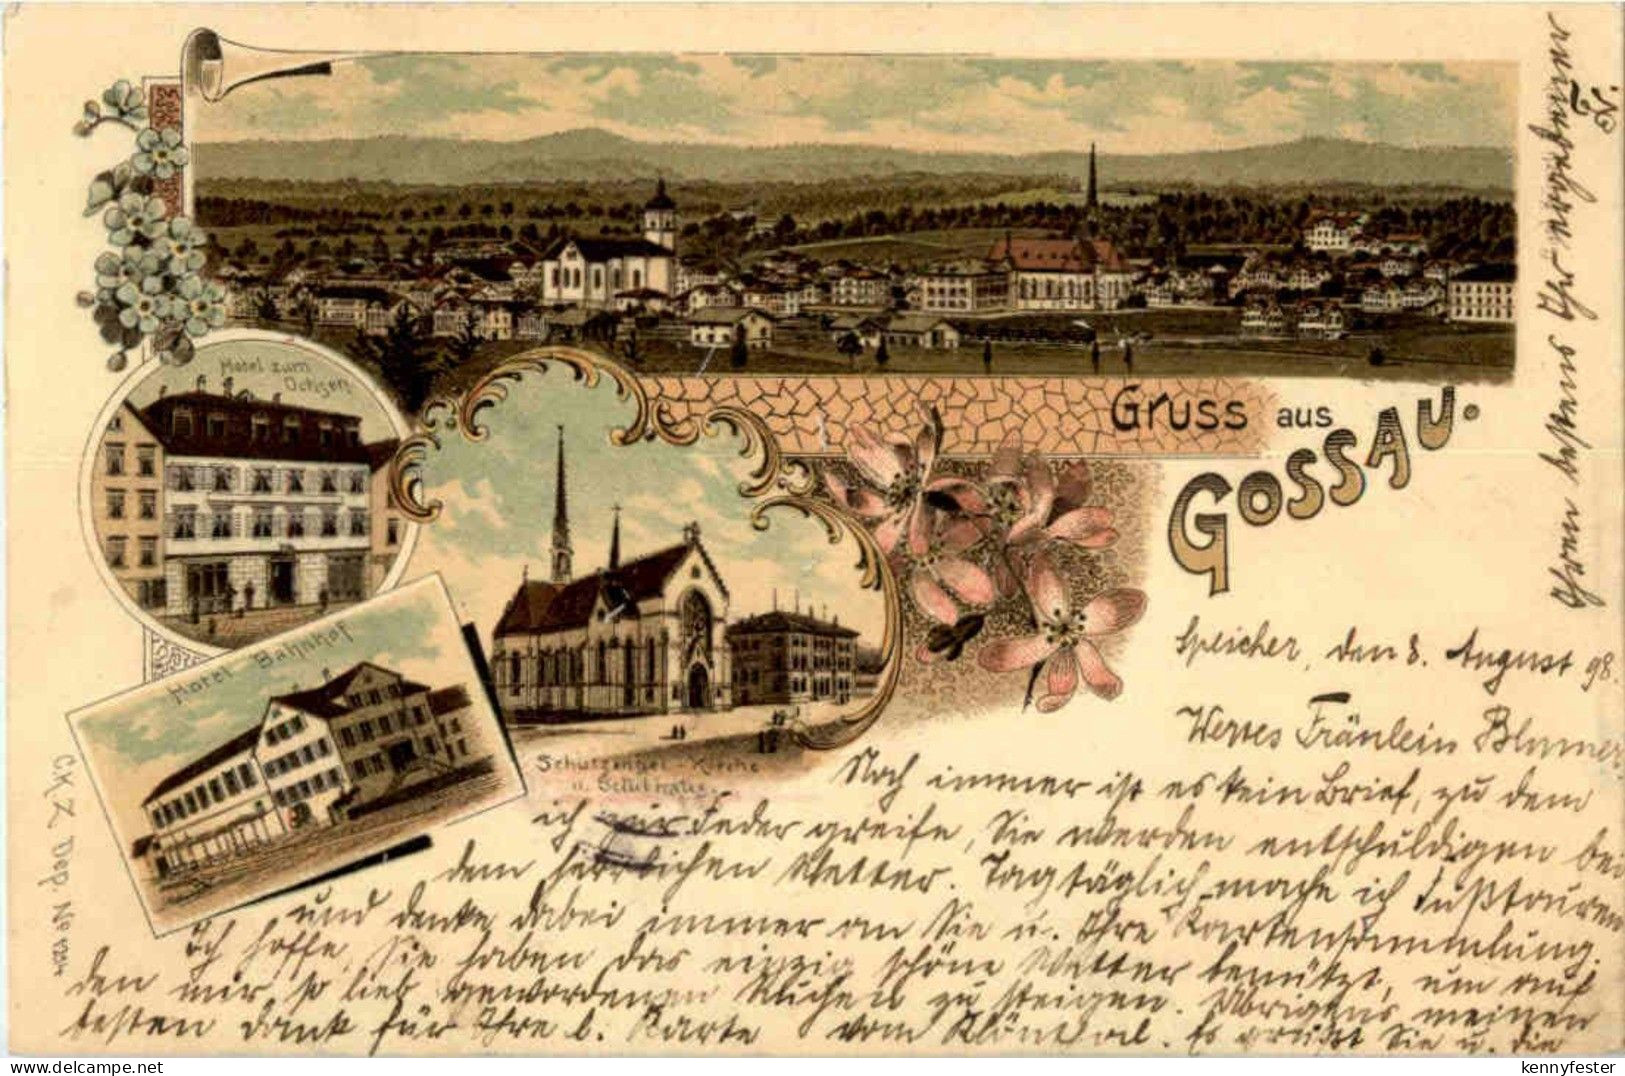 Hotel zum
Ochsen
Gruss aus
GOSSAU.
Hotel Bahnhof
Schutzengel-Kirche
u. Schulhaus.
C.K.Z. Dep. No 1254
Speicher, den 8. August 98.
Wertes Fräulein Blumer,
Noch immer ist es kein Brief, zu dem
ich zur Feder greife, Sie werden entschuldigen bei
dem herrlichen Wetter. Tagtäglich mache ich Fußtouren
und denke dabei immer an Sie u. Ihre Kartensammlung.
Ich hoffe, Sie haben das einzig schöne Wetter benützt, um auf
den mir so lieb gewordenen zu steigen. Übrigens meinen
besten Dank für Ihre l. Karte vom Klönthal. Es grüßt Sie u. die
Ihr ergebener
kennyfester